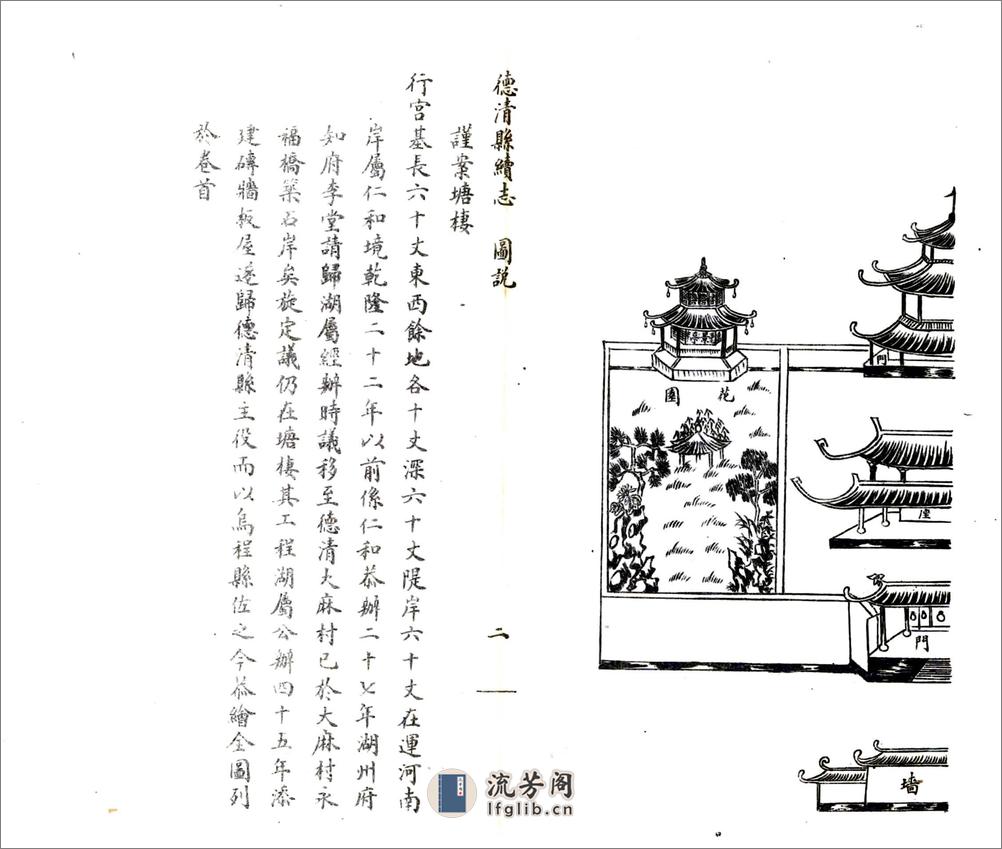 門
花園
座
門
墻
德清縣續志 圖説 二
謹案塘棲
行宮基長六十丈東西餘地各十丈深六十丈隄岸六十丈在運河南
岸屬仁和境乾隆二十二年以前係仁和恭辦二十七年湖州府
知府李堂請歸湖屬經辦時議移至德清大麻村已於大麻村永
福橋築石岸矣旋定議仍在塘棲其工程湖屬公辦四十五年添
建磚牆板屋遂歸德清縣主役而以烏程縣佐之今恭繪全圖列
於卷首
流芳阁
lfglib.cn